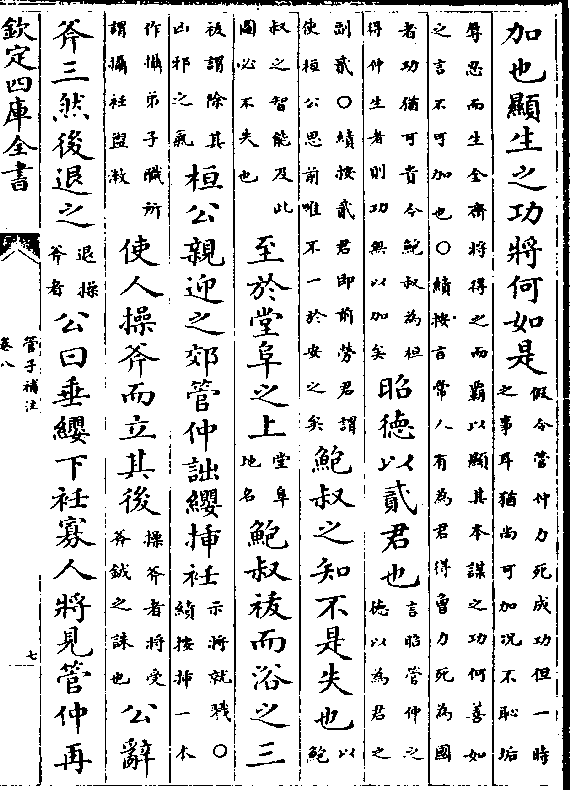 加也顯生之功將何如是假令管仲力死成功但一時之事耳猶尚可加況不恥垢
辱忍而生全齊將得之而霸以顯其本謀之功何善如之言不可加也○績按言常人有為君得魯力死為國
者功猶可貴今鮑叔為桓得仲生者則功無以加矣昭德以貳君也言昭管仲之德以為君之
副貳○績按貳君即前勞君謂使桓公思前唯不一於安之矣鮑叔之知不是失也以鮑
叔之智能及此圖必不失也至於堂阜之上堂阜地名鮑叔祓而浴之三
祓謂除其凶邪之氣桓公親迎之郊管仲詘纓揷衽示將就戮○績按揷一本
作攝弟子職所謂攝衽盥漱使人操斧而立其後操斧者將受斧鉞之誅也公辭
斧三然後退之退操斧者公曰垂纓下衽寡人將見管仲再
欽定四庫全書
管子補注
卷八
七